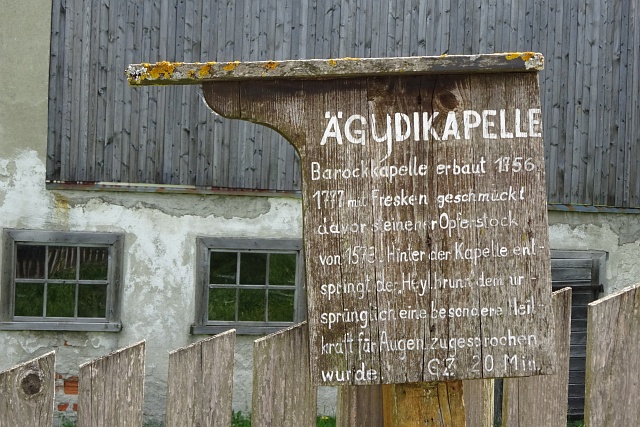 ÄGYDIKAPELLE
Barockkapelle erbaut 1756.
1777 mit Fresken geschmückt
davor steinener Opferstock
von 1573. Hinter der Kapelle ent-
springt der „Heylbrunn“ dem ur-
sprünglich eine besondere Heil-
kraft für Augen zugesprochen
wurde. GZ 20 Min.